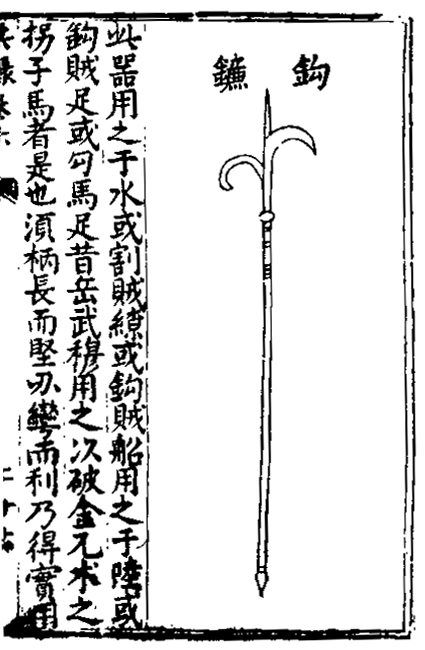 鈎鐮
此器用之于水或割賊繚或鈎賊船用之于陸或
鈎賊足或勾馬足昔岳武穆用之以破金兀朮之
拐子馬者是也湏柄長而堅刃彎而利乃得實用
兵錄卷